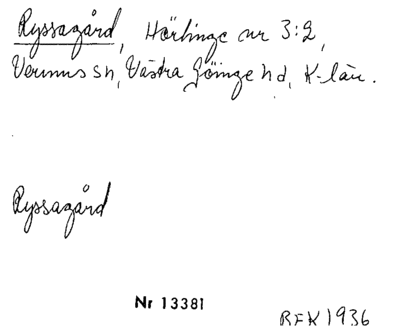 Ryssagård, Hörlinge nr 3:2,
Verums sn, Västra Göinge hd, K-län.
Ryssagård
Nr 13381
RFK 1936